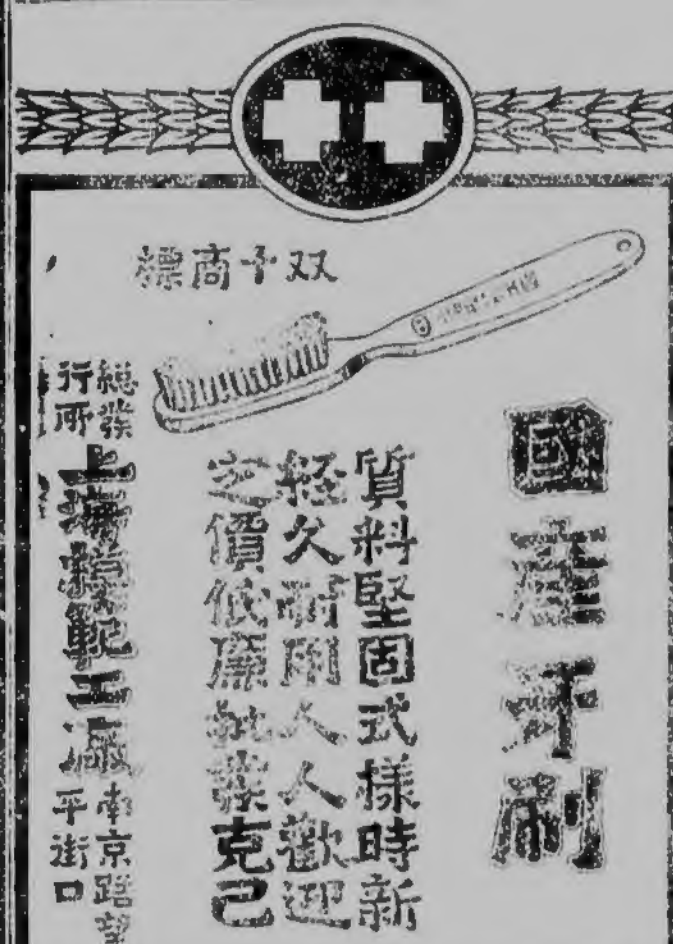 双十商標
國產牙刷
質料堅固式樣時新
經久耐用人人歡迎
定價低廉批發克己
總發
行所
上海模範工廠
南京路望
平街口